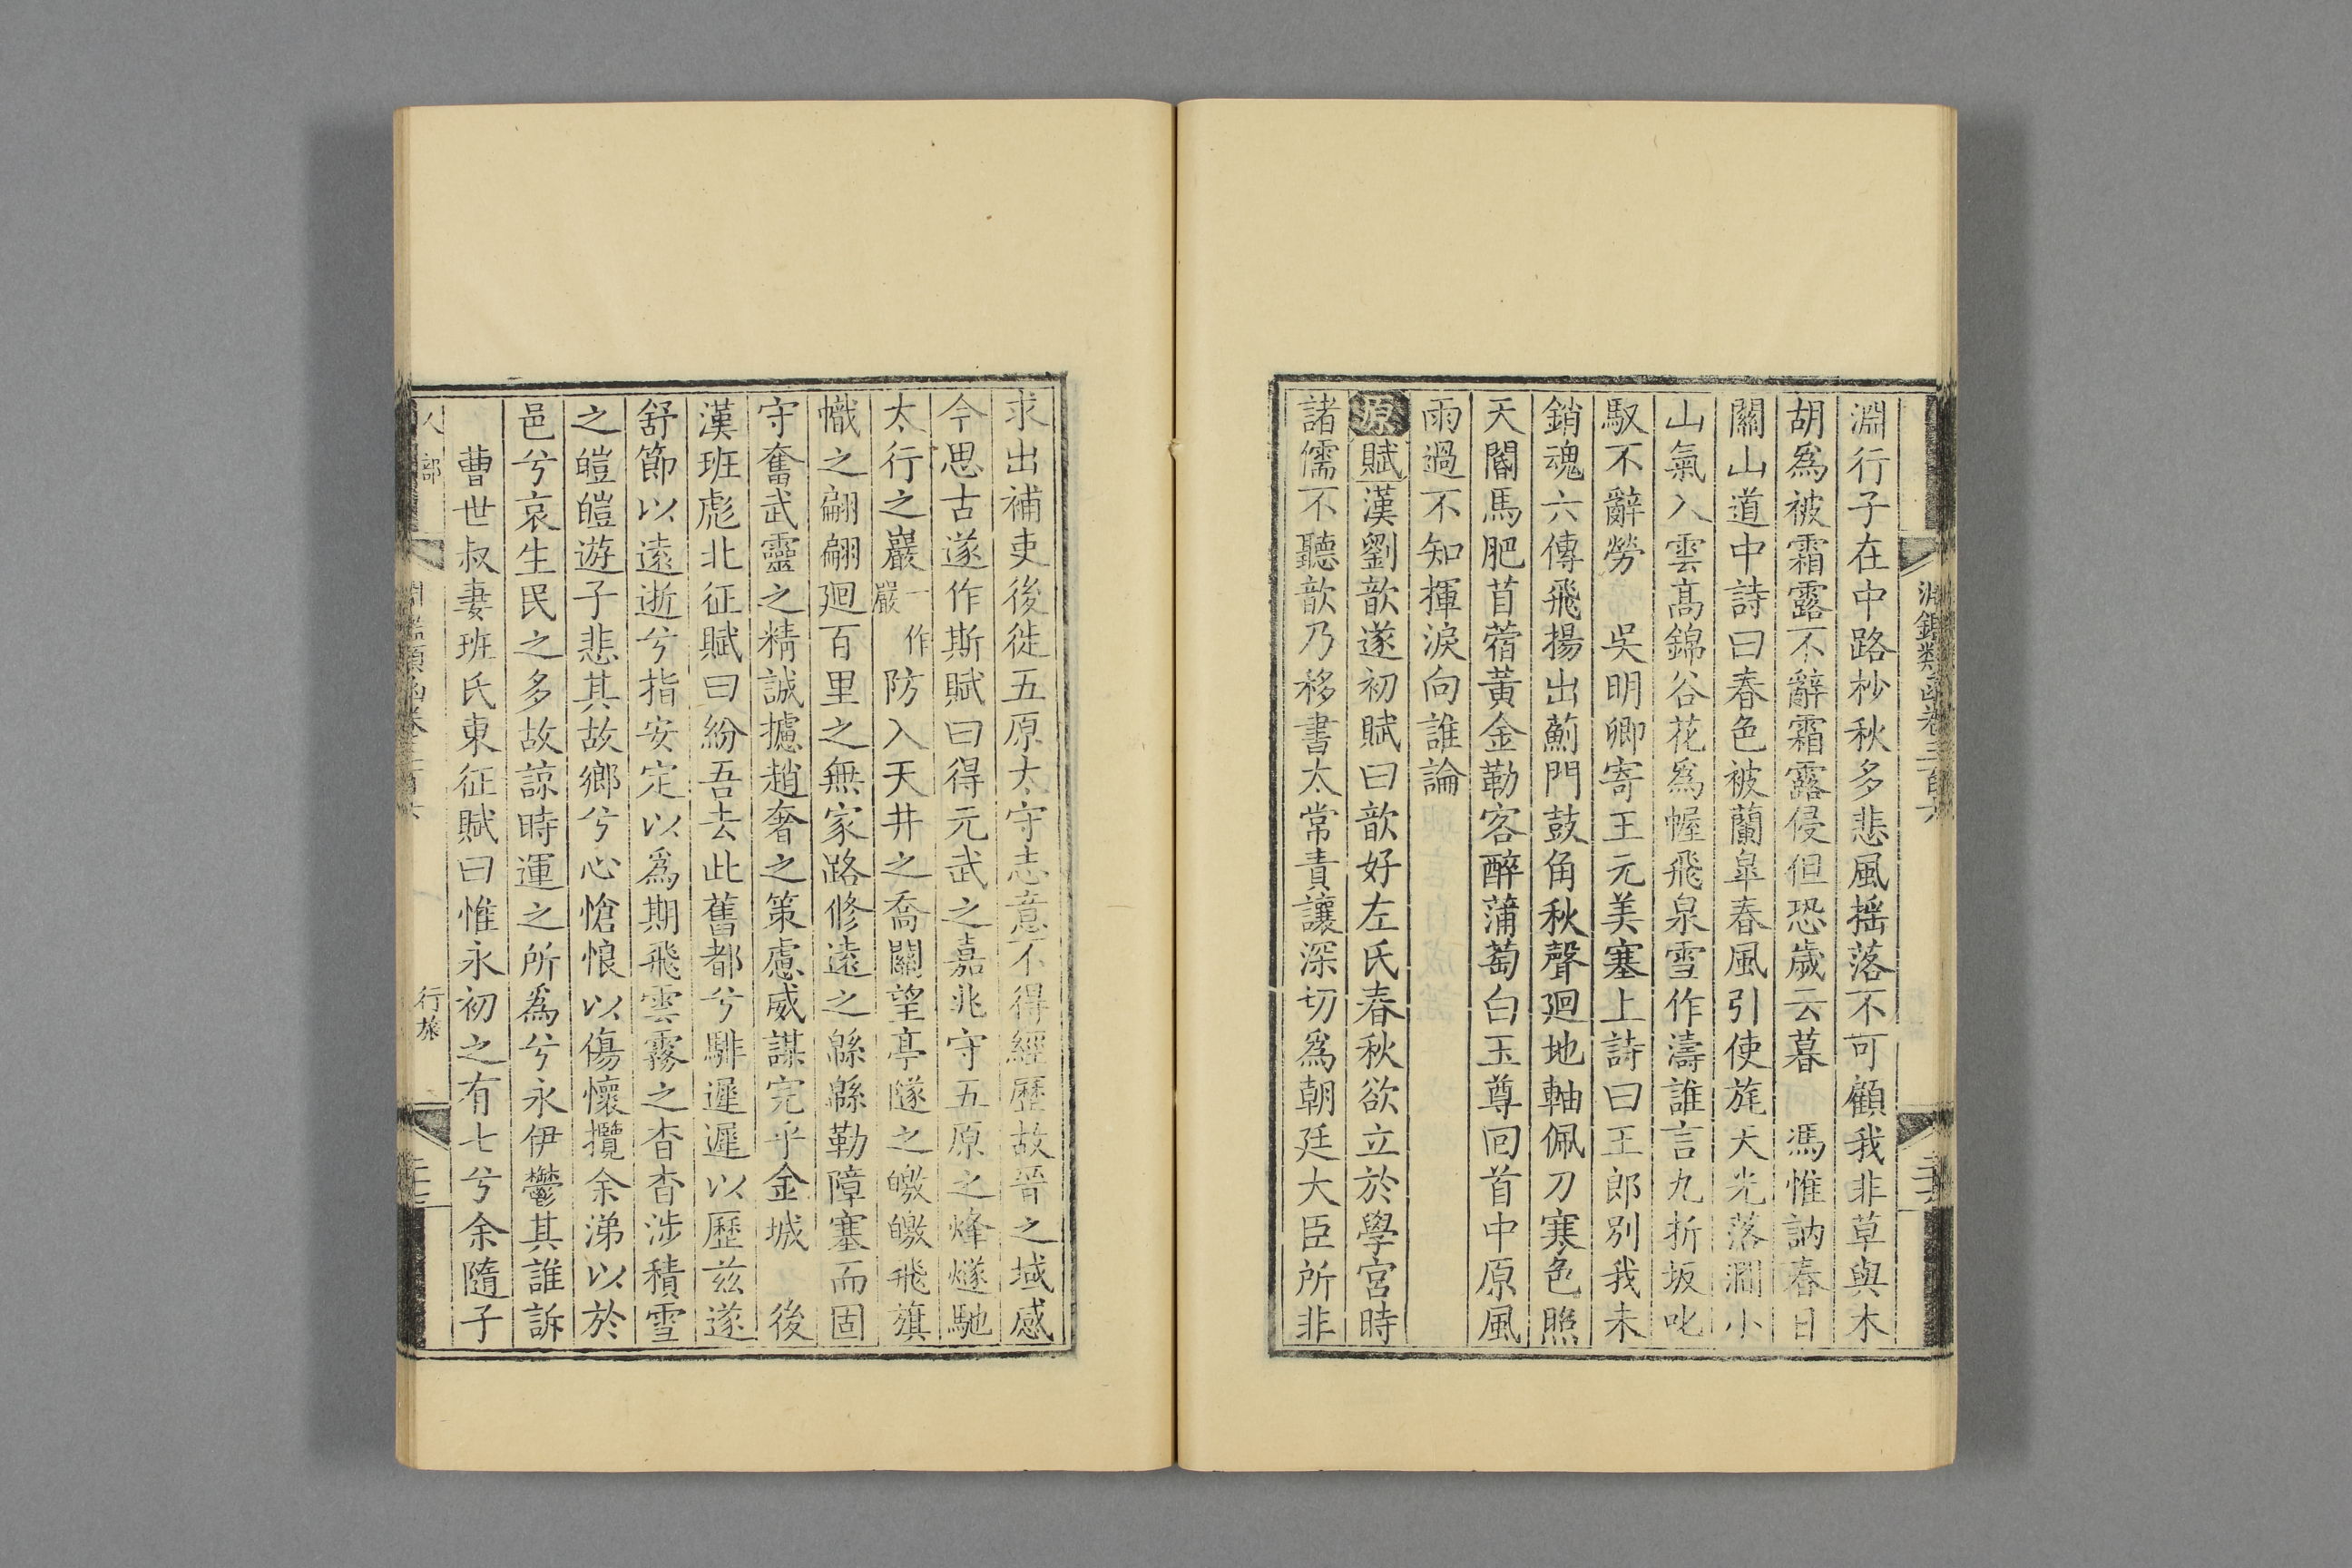 淵鑑類函卷三百六
淵行子在中路杪秋多悲風揺落不可顧我非草與木
胡爲被霜露不辭霜露侵但恐歲云暮　馮惟訥春日
關山道中詩曰春色被蘭皐春風引使旄天光落澗小
山氣入雲髙錦谷花爲幄飛泉雪作濤誰言九折坂叱
馭不辭勞　吳明卿寄王元美塞上詩曰王郎別我未
銷魂六傳飛揚出薊門鼓角秋聲廻地軸佩刀寒色照
天閽馬肥苜蓿黃金勒客醉蒲萄白玉尊回首中原風
雨過不知揮淚向誰論
原賦漢劉歆遂初賦曰歆好左氏春秋欲立於學宮時
諸儒不聽歆乃移書太常責讓深切爲朝廷大臣所非
求出補吏後徙五原太守志意不得經歷故晉之域感
今思古遂作斯賦曰得元武之嘉兆守五原之烽燧馳
太行之巖一作嚴防入天井之喬關望亭隧之皦皦飛旗
幟之翩翩廻百里之無家路修遠之緜緜勒障塞而固
守奮武靈之精誠攄趙奢之策慮威謀完乎金城　後
漢班彪北征賦曰紛吾去此舊都兮騑遲遲以歷兹遂
舒節以遠逝兮指安定以爲期飛雲霧之杳杳涉積雪
之皚皚遊子悲其故鄉兮心愴悢以傷懷攬余涕以於
邑兮哀生民之多故諒時運之所爲兮永伊鬱其誰訴
曹世叔妻班氏東征賦曰惟永初之有七兮余隨子
人部
行旅